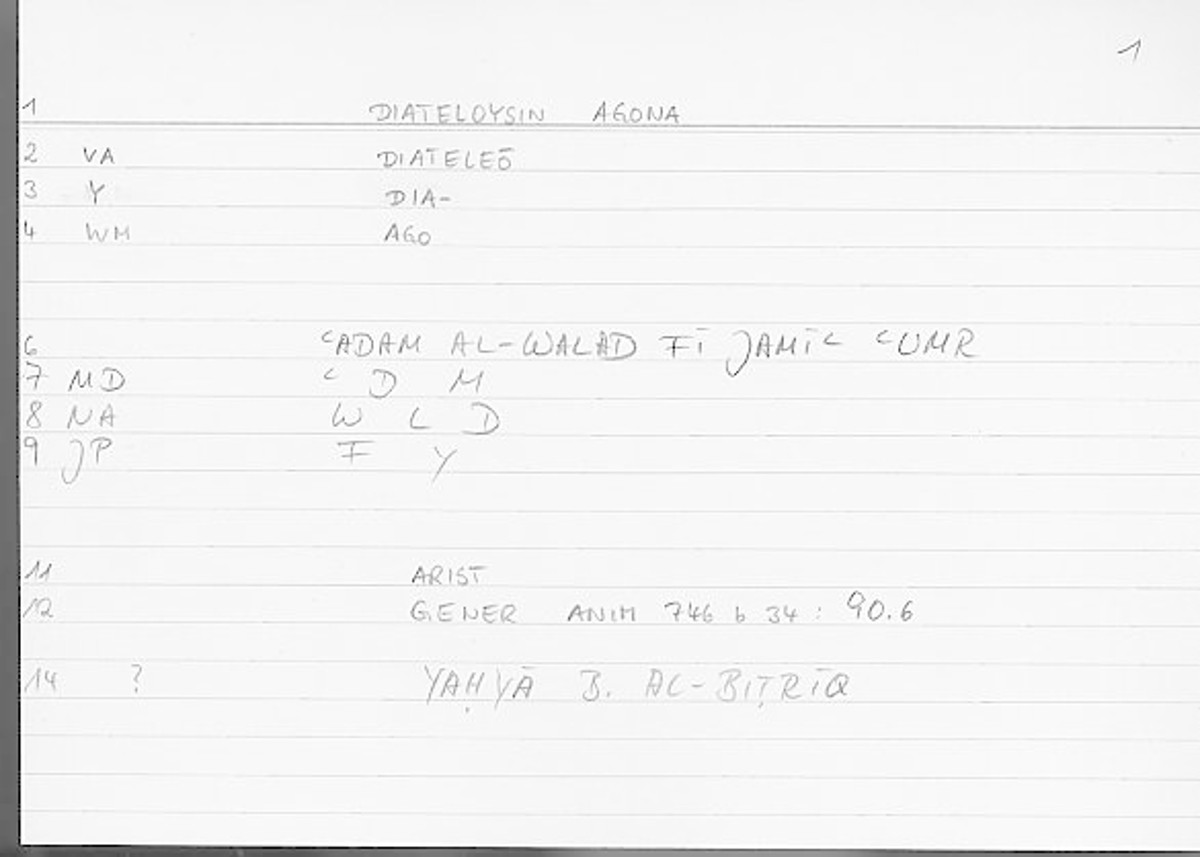 1
1 DIATELOYSIN AGONA
2 VA DIATELEŌ
3 Y DIA-
4 WM AGO
6 ᶜADAM AL-WALAD FĪ JAMĪᶜ ᶜUMR
7 MD ᶜ D M
8 NA W L D
9 JP F Y
11 ARIST
12 GENER ANIM 746 b 34 : 90.6
14 ? YAḤYĀ B. AL-BIṬRĪQ